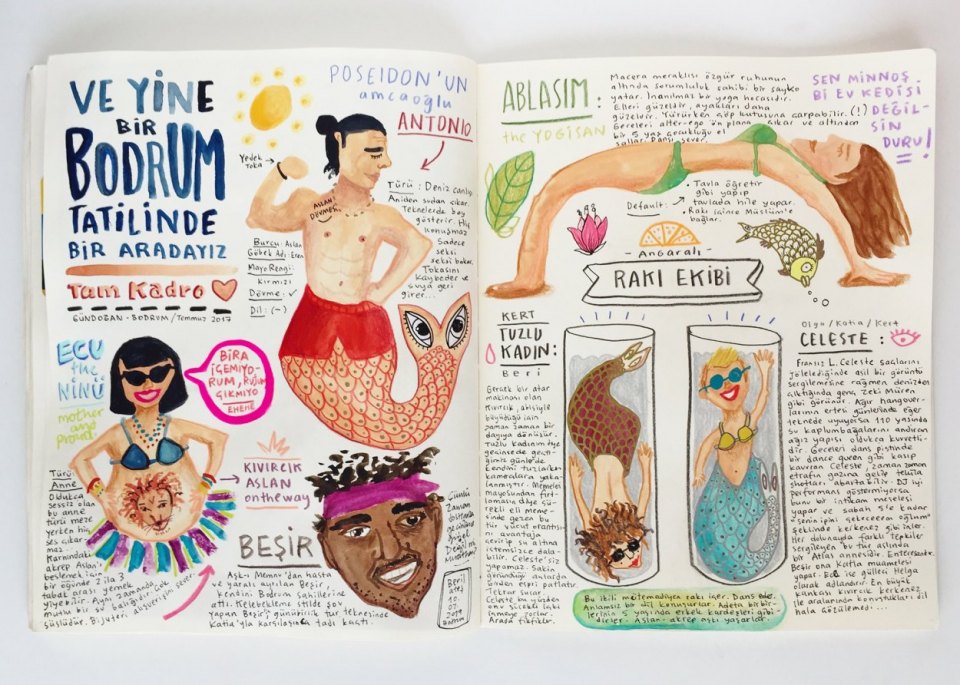 VE YİNE
BİR
BODRUM
TATİLİNDE
BİR ARADAYIZ
Tam Kadro
GÜNDOĞAN - BODRUM / Temmuz 2017
POSEIDON'UN
amcaoğlu
ANTONIO
Yedek
Toka
ASLAN
DÖVMESİ
Türü: Deniz canlısı
Aniden sudan çıkar.
Teknelerde boy
gösterir. Hiç
konuşmaz
sadece
seksi
seksi bakar.
Tokasını
kaybeder ve
suya geri
girer...
Burcu: Aslan
Göbek Adı: Eren
Mayo Rengi:
Kırmızı
Dövme: ✓
Dil: (-)
ECU
the
NINU
mother
and
proud
BİRA
İÇEMİYO-
RUM, RUJUM
ÇIKMIYO
EHEHE
Türü:
Anne
Oldukça
sessiz olan
bu anne
türü meze
yerken hiç
ses çıkar-
maz.
Karnındaki
akrep Aslan'ı
beslemek için
bir öğünde 2 ila 3
tabak arası yemek
yiyebilir. Aynı zamanda çok
mutlu bir şişbalığıdır.
süslüdür. Bijuteri, aksesuvar sever.
KIVIRCIK
ASLAN
on the way
BEŞİR
Aşk-ı Memnu'dan hasta
ve yaralı ayrılan Beşir,
kendini Bodrum sahillerine
attı. Kelebekleme stilde şov
yapan Beşir'in günübirlik tur teknesinde
Katia'yla karşılaşınca tadı kaçtı.
Beril
ateş
10.
07.
2017
Bodrum
ABLASIM:
the YOGISAN
Macera meraklısı özgür ruhunun
altında sorumluluk sahibi bir sayko
yatar. İnanılmaz bir yoga hocasıdır.
Elleri güzeldir, ayakları daha
güzeldir. Yürürken çöp kutusuna çarpabilir. (!)
Geceleri alter-ego ön plana çıkar ve altından
bir 5 yaş çocukluğu el
sallar. Dansı sever.
SEN MİNNOŞ
Bİ EV KEDİSİ
DEĞİL-
SİN
DURU!
Default:
• Tavla öğretir
gibi yapıp
tavlada hile yapar.
• Rakı içince Müslüm'e
bağlar.
- Angaralı -
RAKI EKİBİ
KERT
TUZLU
KADIN:
Beri
Gerçek bir atar
makinası olan
Kıvırcık, abisiyle
büyüdüğü için
zaman zaman bir
dayıya dönüşür.
Tuzlu kadınım diye
gecinsede geçti-
ğimiz günlerde
kendini tuzlarken
kameralara yaka-
lanmıştır. Memeler
mayosundan fırt-
lamasın diye sü-
rekli eli meme-
sinde gezen bu
tür vücut orantısı-
nı avantaja
çevirip su altına
istemsizce dala-
bilir. Celeste'siz
yapamaz. Sakin
göründüğü anlarda
birden espri patlatır.
Tekrar susar.
Celeste bu yüzden
onu sürekli rakı
içmeye zorlar.
Arada fikfikler.
Olgu / Katia / Kert
CELESTE:
Fransız L. Celeste saçlarını
jölelediğinde asil bir görüntü
sergilemesine rağmen denizden
çıktığında genç Zeki Müren
gibi görünür. Ağır hangover-
larının ertesi günlerinde eğer
teknede uyuyorsa 110 yaşında
su kaplumbağalarını andıran
ağız yapısı oldukça kuvvetli-
dir. Geceleri dans pistinde
bir dance queen gibi kasıp
kavuran Celeste, zaman zaman
etrafın gazına gelip tekila
shotları abartabilir. DJ iyi
performans göstermiyorsa
bunu bir intikam meselesi
yapar ve sabah 5'le kadar
"Senin ipini çekeceeem oğlum"
şeklinde kerkenez gibi inler.
Her dolunayda farklı tepkiler
sergileyen bu tür aslında
bir Atlas annesidir. Enteresandır.
Beşir ona Katia muamelesi
yapar. Ecü ise güllacı Helga
olarak adlandırır. En büyük
kankası kıvırcık kerkenez
ile aralarında konuştukları dil
hala çözülemedi...
Bu ikili mütemadiyen rakı içer. Dans eder.
Anlamsız bir dil konuşurlar. Adeta birbir-
lerinin 5 yaşında erkek kardeşleri gibi-
dirler. Aslan-akrep aşkı yaşarlar.